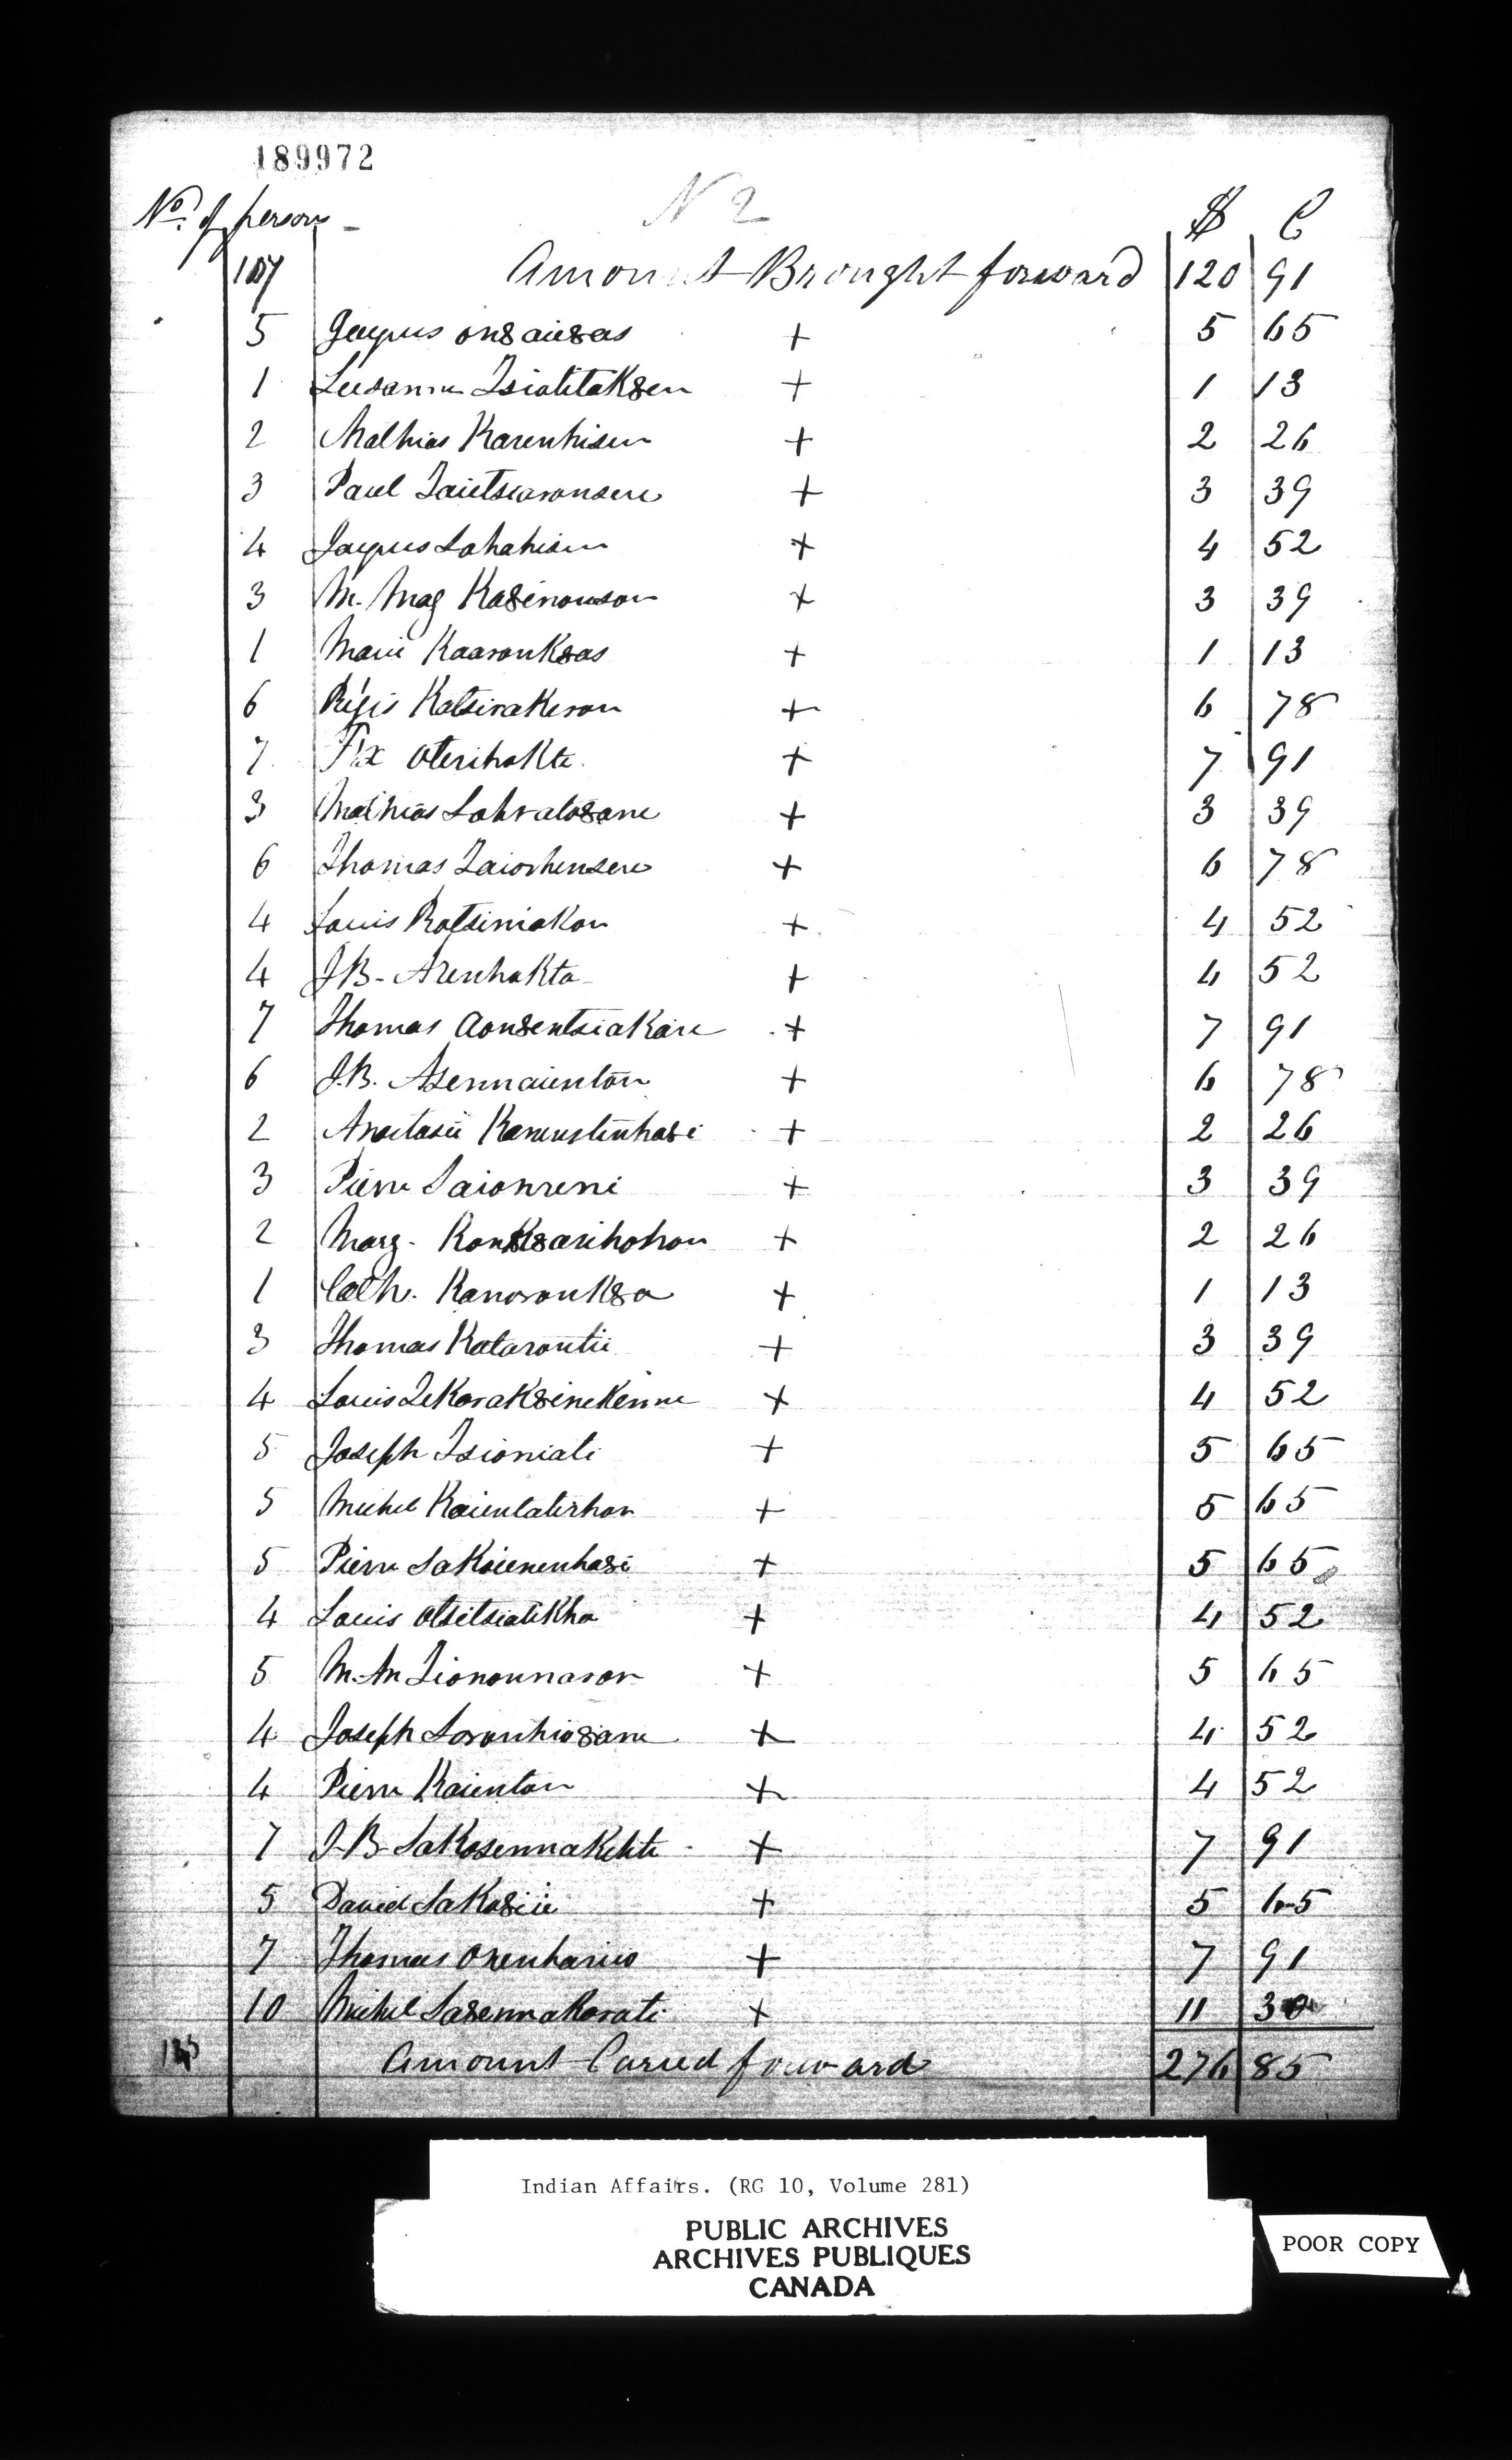 189972
No. of persons N 2 $ C
107 Amount Brought forward 120 91
5 Jacques on8aie8as + 5 65
1 Susanne Tsiatitak8en + 1 13
2 Mathias Karenhisen + 2 26
3 Paul Taietsaronsere + 3 39
4 Jacques Sahahisen + 4 52
3 M. Mag Ka8enonson + 3 39
1 Marie Kaaronk8as + 1 13
6 Régis Katsirakeron + 6 78
7 Fx Oterihokte + 7 91
3 Mathias Sohrato8ane + 3 39
6 Thomas Taiorhensere + 6 78
4 Louis Ratsiniakon + 4 52
4 J.B. Arenhokta + 4 52
7 Thomas Aon8entsiakare + 7 91
6 J.B. Asennaienton + 6 78
2 Anastasie Kanenstenha8i + 2 26
3 Pierre Saionreni + 3 39
2 Marg. Konk8arihohon + 2 26
1 Cath. Kanoronk8a + 1 13
3 Thomas Katarontie + 3 39
4 Louis Tekarak8inekenne + 4 52
5 Joseph Tsioniati + 5 65
5 Michel Kaientaterhon + 5 65
5 Pierre Sakoienenha8i + 5 65
4 Louis Otsitsiatekha + 4 52
5 M. An Tionounason + 5 65
4 Joseph Soronhio8ane + 4 52
4 Pierre Kaienton + 4 52
7 J-B Sakosennakehte + 7 91
5 David Sako8iie + 5 65
7 Thomas Orenharies + 7 91
10 Michel Sa8ennakarati + 11 30
Amount Caried forward 276 85
Indian Affairs. (RG 10, Volume 281)
PUBLIC ARCHIVES
ARCHIVES PUBLIQUES
CANADA
POOR COPY